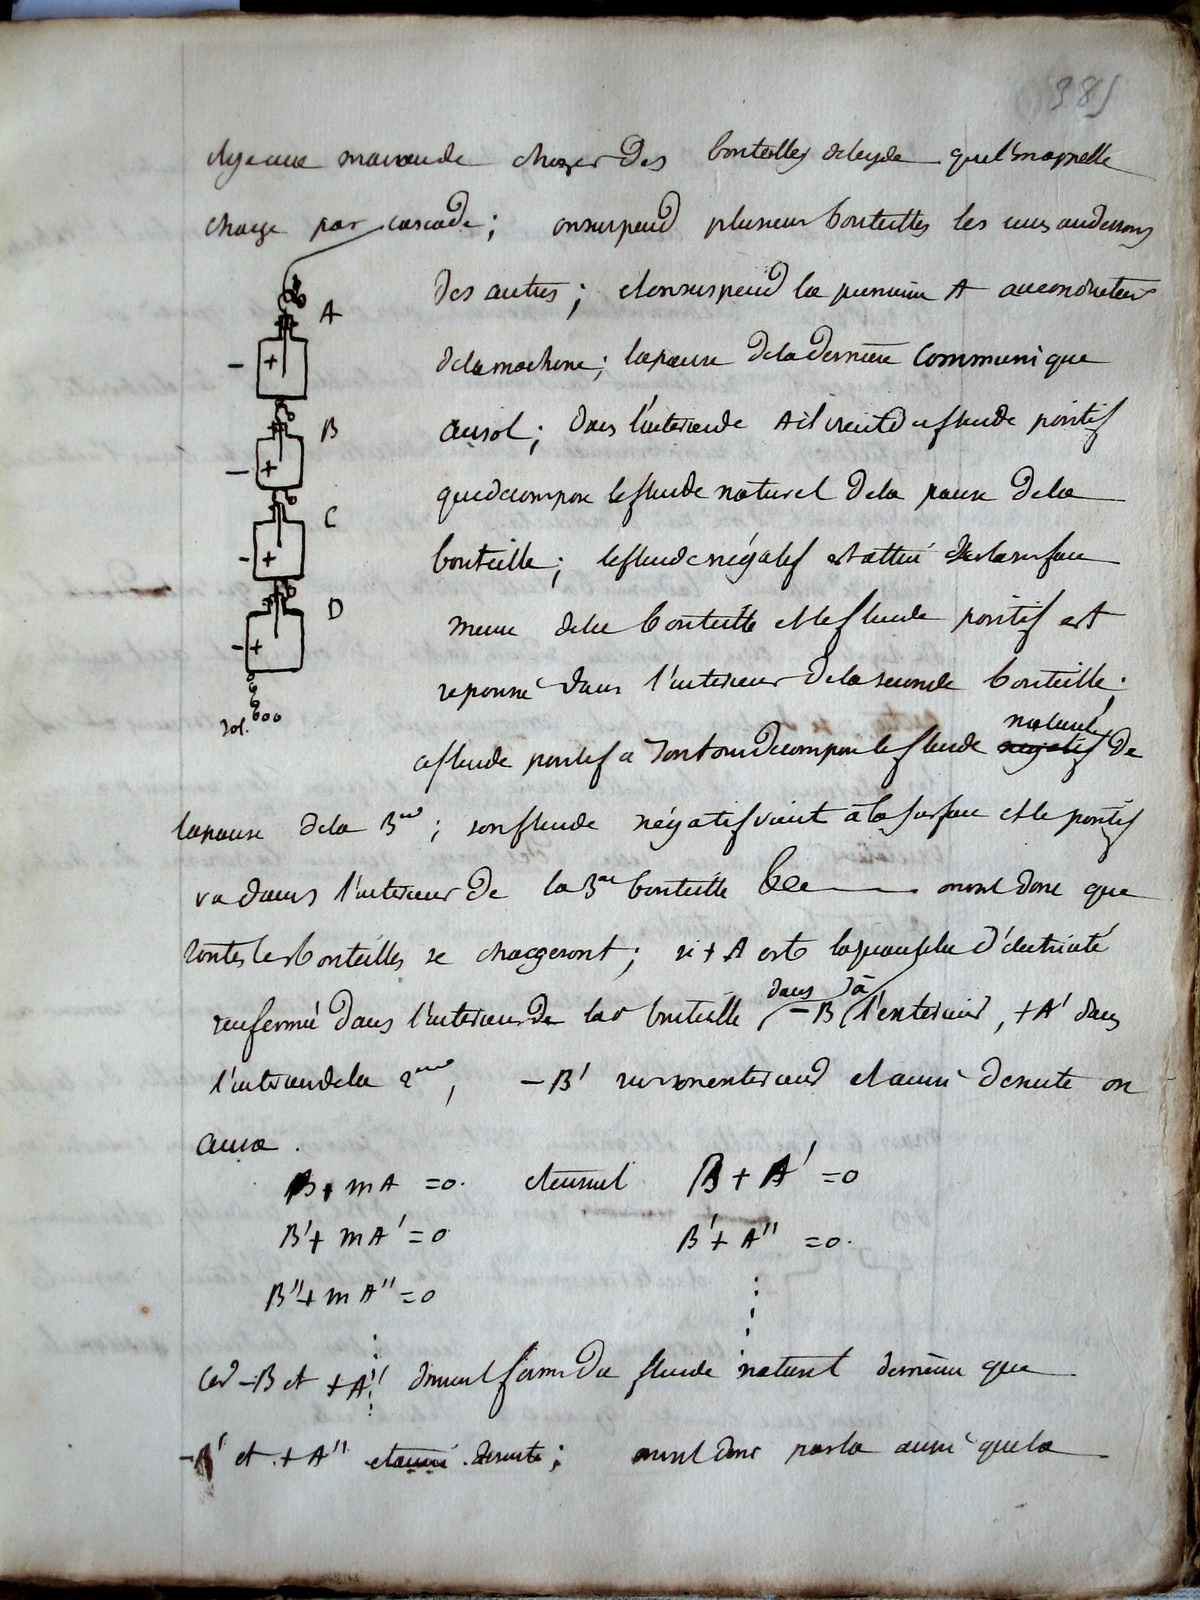 385
il y a une maniere de charger des bouteilles de leyde que l'on appelle
charge par cascade ; on suspend plusieurs bouteilles les unes au dessous
des autres ; et on suspend la premiere A au conducteur
de la machine ; la panse de la derniere communique
au sol ; dans l'interieur de A il vient du fluide positif
qui decompose le fluide naturel de la panse de la
bouteille ; le fluide négatif est attiré sur la surface
meme de la bouteille et le fluide positif est
repoussé dans l'interieur de la seconde bouteille ;
naturel
ce fluide positif a son tour decompose le fluide negatif de
la panse de la B ; son fluide négatif vient à la surface et le positif
va dans l'interieur de la 3me bouteille &c on voit donc que
toutes les bouteilles se chargeront ; si + A est la quantité d'électricité
dans
renfermé dans l'interieur de la bouteille , - B l'exterieur , + A' dans
l'interieur de la 2me , - B' sur son exterieur et ainsi de suite on
aura .
B + mA = 0 . et ensuite B + A' = 0
B' + mA' = 0 B' + A'' = 0 .
B'' + mA'' = 0
car - B et + A' doivent former du fluide naturel de meme que
- B' et + A'' et ainsi de suite ; on voit donc par la aussi que la
A
B
C
D
+
-
+
-
+
-
+
-
sol.